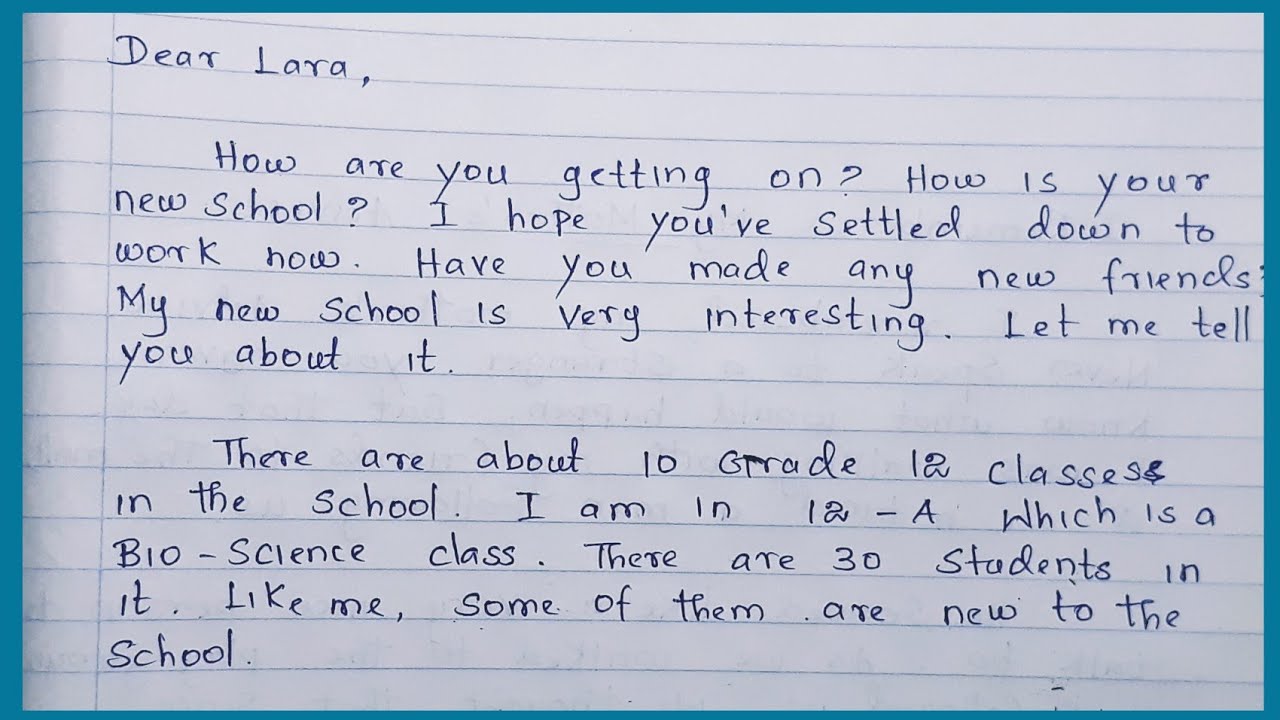 Dear Lara,
How are you getting on? How is your
new school? I hope you've settled down to
work now. Have you made any new friends?
My new school is very interesting. Let me tell
you about it.
There are about 10 Grade 12 classes
in the school. I am in 12-A which is a
Bio-Science class. There are 30 students in
it. Like me, some of them are new to the
school.